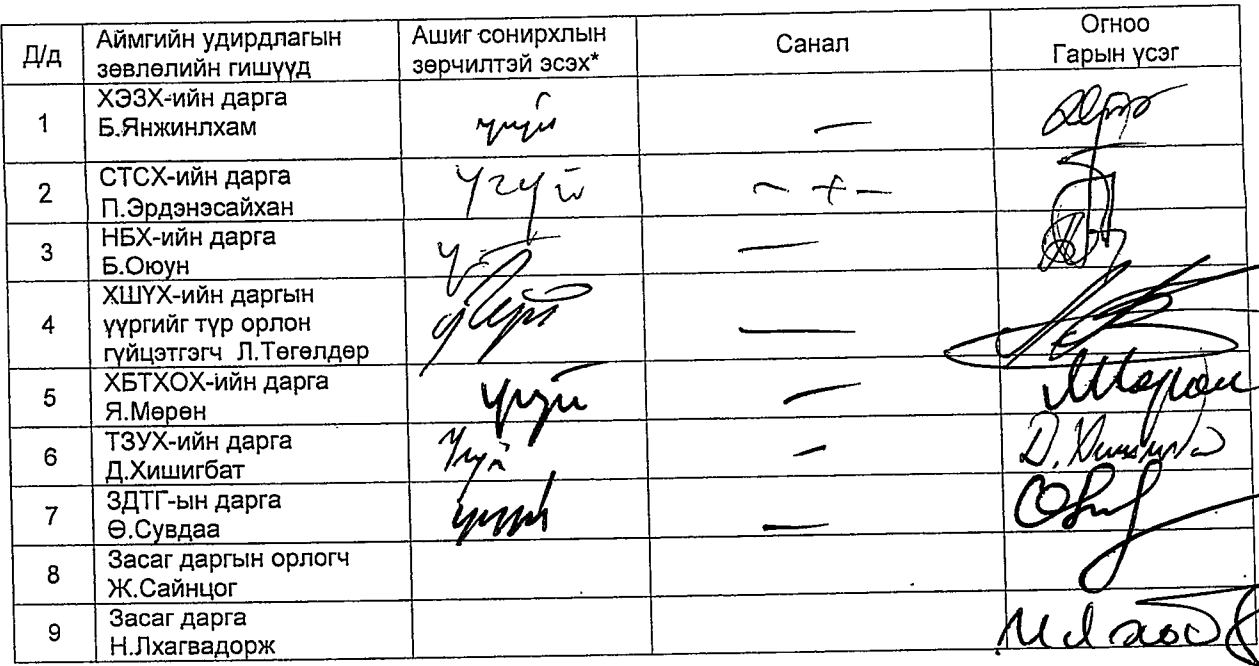 Д/д
Аймгийн удирдлагын
зөвлөлийн гишүүд
Ашиг сонирхлын
зөрчилтэй эсэх*
Санал
Огноо
Гарын үсэг
1
ХЭЗХ-ийн дарга
Б.Янжинлхам
үгүй
2
СТСХ-ийн дарга
П.Эрдэнэсайхан
Үгүй
3
НБХ-ийн дарга
Б.Оюун
4
ХШҮХ-ийн даргын
үүргийг түр орлон
гүйцэтгэгч Л.Төгөлдөр
5
ХБТХОХ-ийн дарга
Я.Мөрөн
үгүй
6
ТЗУХ-ийн дарга
Д.Хишигбат
Үгүй
7
ЗДТГ-ын дарга
Ө.Сувдаа
үгүй
8
Засаг даргын орлогч
Ж.Сайнцог
9
Засаг дарга
Н.Лхагвадорж